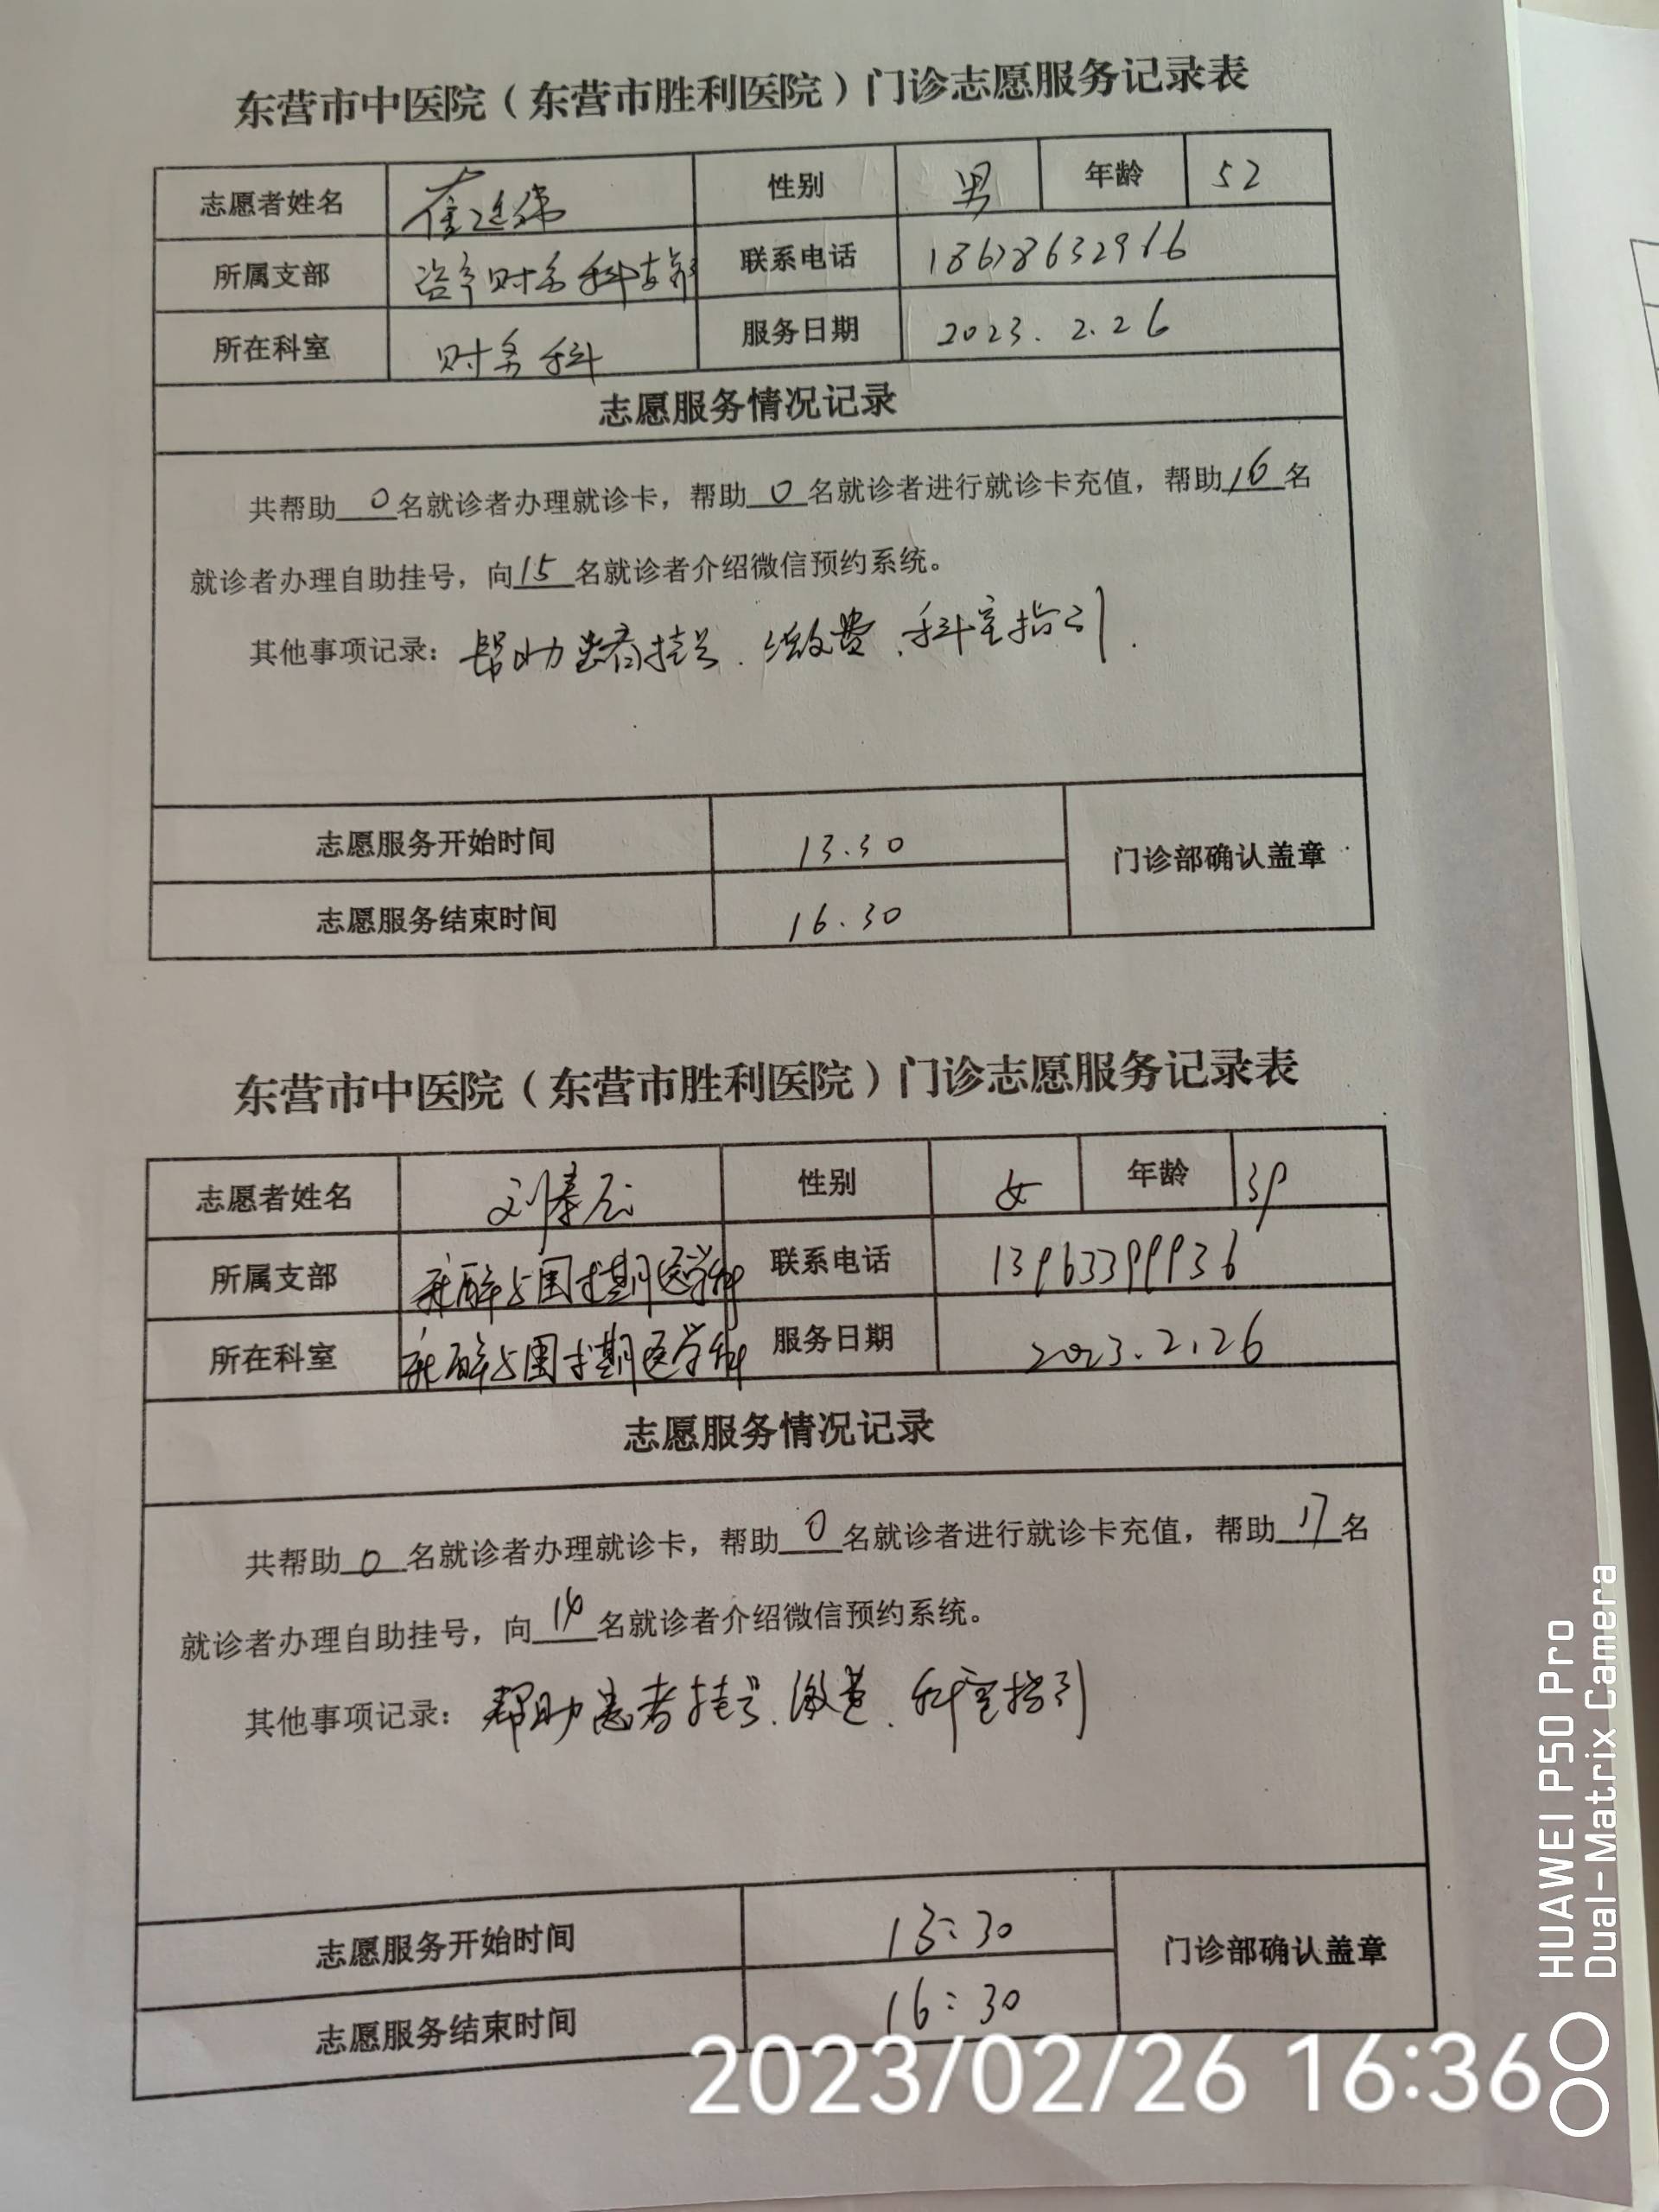 东营市中医院（东营市胜利医院）门诊志愿服务记录表
志愿者姓名 崔廷 性别 男 年龄 52
所属支部 资产财务科支部 联系电话
所在科室 财务科 服务日期 2023.2.26
志愿服务情况记录
共帮助 0 名就诊者办理就诊卡，帮助 0 名就诊者进行就诊卡充值，帮助 16 名
就诊者办理自助挂号，向 15 名就诊者介绍微信预约系统。
其他事项记录：帮助患者挂号、缴费、科室指引.
志愿服务开始时间 13.30 门诊部确认盖章
志愿服务结束时间 16.30
东营市中医院（东营市胜利医院）门诊志愿服务记录表
志愿者姓名 刘 性别 女 年龄 39
所属支部 麻醉与围术期医学科 联系电话 13963399936
所在科室 麻醉与围术期医学科 服务日期 2023.2.26
志愿服务情况记录
共帮助 0 名就诊者办理就诊卡，帮助 0 名就诊者进行就诊卡充值，帮助 17 名
就诊者办理自助挂号，向 14 名就诊者介绍微信预约系统。
其他事项记录：帮助患者挂号、缴费、科室指引
志愿服务开始时间 13:30 门诊部确认盖章
志愿服务结束时间 16:30
2023/02/26 16:36
HUAWEI P50 Pro
Dual-Matrix Camera